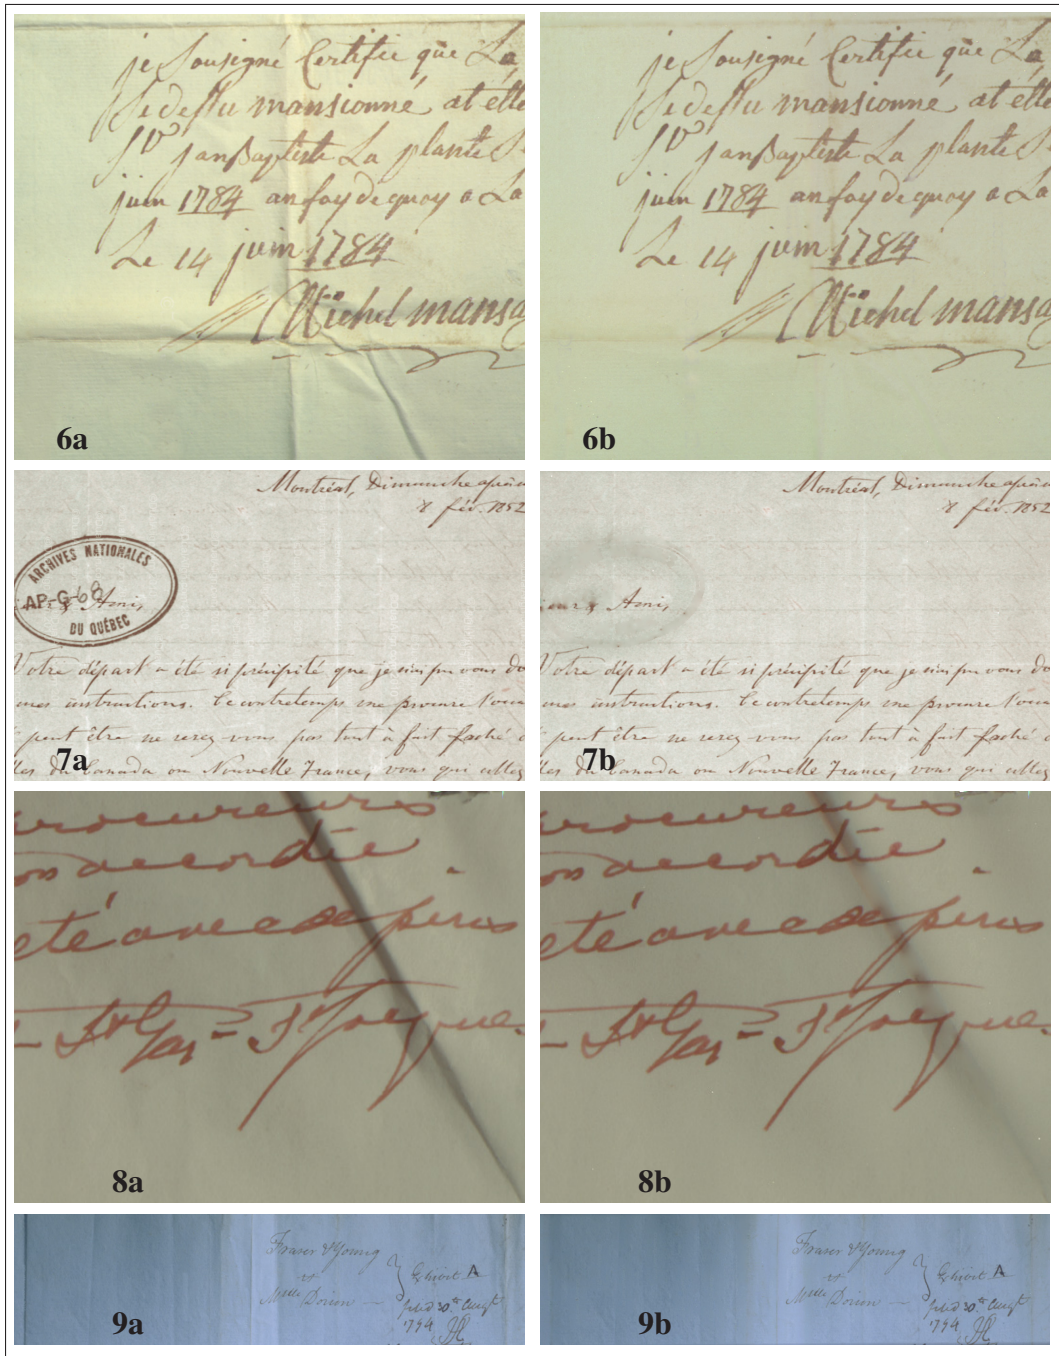 je Sousigné Certifie que La
Sedessu mansionné at etté
janBaptiste La plante
juin 1784 anfoy de quoy a La
Le 14 juin 1784
Michel mansa
6a
je Sousigné Certifie que La
Sedessu mansionné at etté
janBaptiste La plante
juin 1784 anfoy de quoy a La
Le 14 juin 1784
Michel mansa
6b
Montréal, Dimanche après
8 fév. 1852
ARCHIVES NATIONALES
AP-G-68
Amis,
DU QUÉBEC
Votre départ a été si précipité que je n'ai pu vous do
mes instructions. Ce contretemps me procure
peut être ne serez vous pas tout à fait faché
les du Canada ou Nouvelle France, vous qui allez
7a
Montréal, Dimanche après
8 fév. 1852
ieurs Amis,
Votre départ a été si précipité que je n'ai pu vous do
mes instructions. Ce contretemps me procure
peut être ne serez vous pas tout à fait faché
les du Canada ou Nouvelle France, vous qui allez
7b
procureurs
on accordée
eté avec depens
= St Jacques
8a
procureurs
on accordée
eté avec depens
= St Jacques
8b
Fraser & Young
vs
Dorion
Exhibit A
filed 30th Augt
1794
9a
Fraser & Young
vs
Dorion
Exhibit A
filed 30th Augt
1794
9b